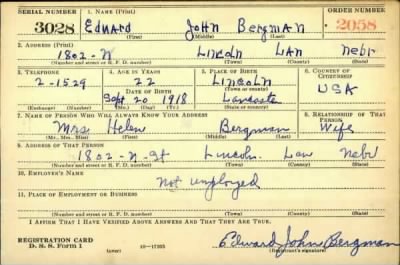 SERIAL NUMBER 1. NAME (Print) ORDER NUMBER
3028 Edward John Bergman 2058
(First) (Middle) (Last)
2. ADDRESS (Print)
1802-N Lincoln Lan Nebr
(Number and street or R. F. D. number) (Town) (County) (State)
3. TELEPHONE 4. AGE IN YEARS 5. PLACE OF BIRTH 6. COUNTRY OF CITIZENSHIP
2-1529 22 Lincoln
DATE OF BIRTH (Town or county) USA
Sept. 20 1918 Lancaster
(Exchange) (Number) (Mo.) (Day) (Yr.) (State or country)
7. NAME OF PERSON WHO WILL ALWAYS KNOW YOUR ADDRESS 8. RELATIONSHIP OF THAT PERSON
Mrs Helen Bergman Wife
(Mr. Mrs. Miss) (First) (Middle) (Last)
9. ADDRESS OF THAT PERSON
1802-N-St Lincoln. Lan Nebr
(Number and street or R. F. D. number) (Town) (County) (State)
10. EMPLOYER'S NAME
Not employed
11. PLACE OF EMPLOYMENT OR BUSINESS
(Number and street or R. F. D. number) (Town) (County) (State)
I AFFIRM THAT I HAVE VERIFIED ABOVE ANSWERS AND THAT THEY ARE TRUE.
REGISTRATION CARD
D. S. S. Form 1 (over) 16-17105 Edward John Bergman
(Registrant's signature)